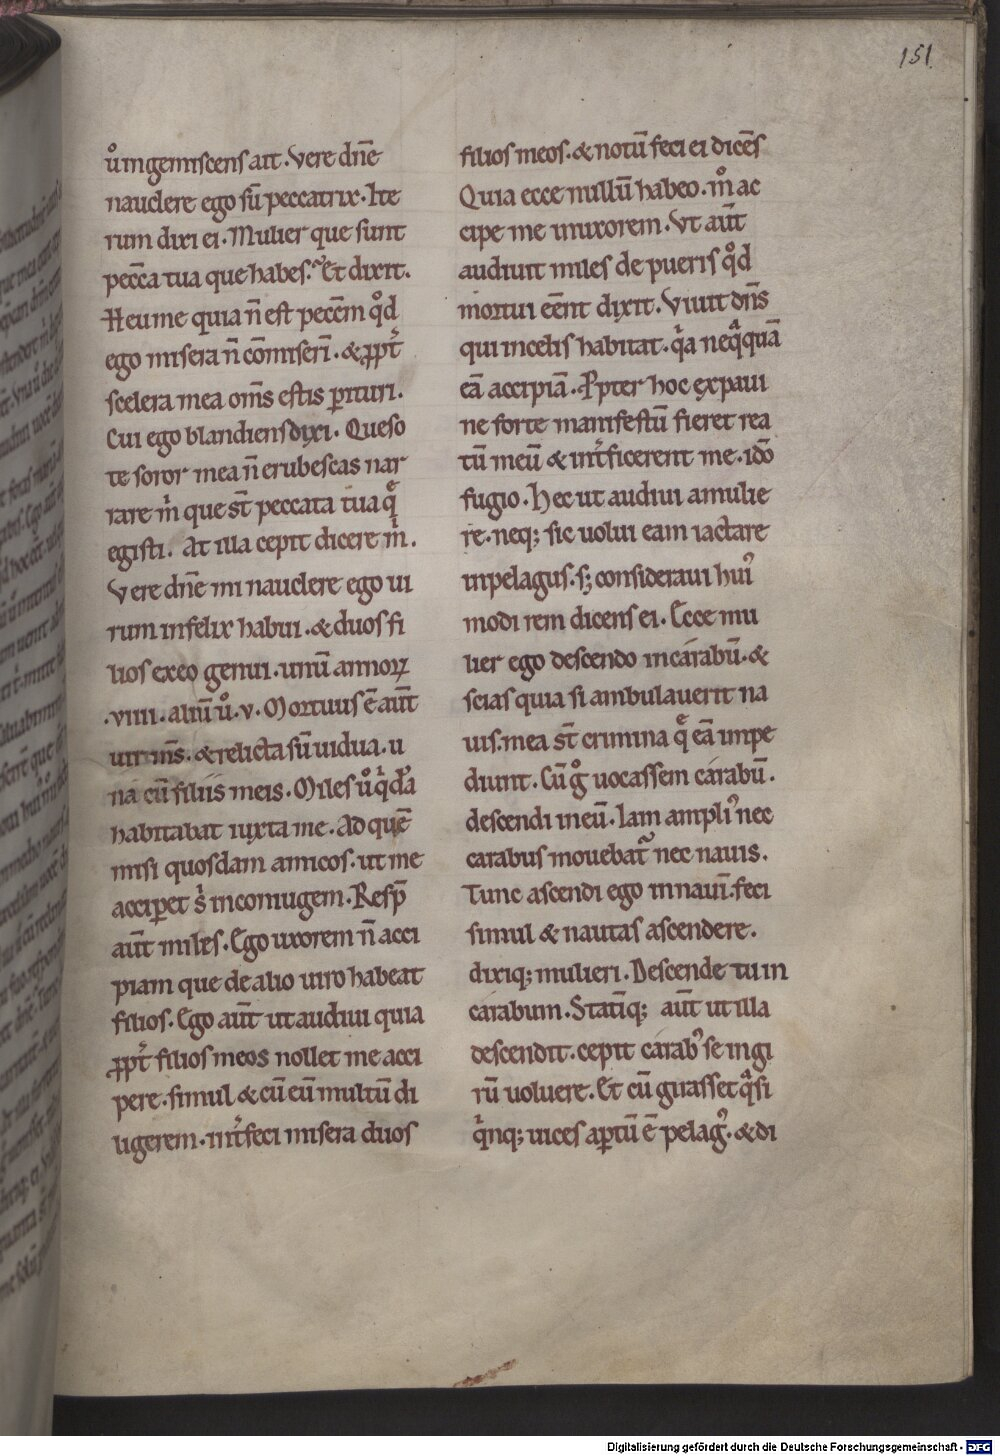 151
uº ingemiscens ait. Vere dn̄e
nauclere ego sū peccatrix. Ite
rum dixi ei. Mulier que sunt
pecc̄a tua que habes. Et dixit.
Heu me quia n̄ est pecc̄m qͦd
ego misera n̄ cōmiserī. & ꝓpt̄
scelera mea om̄s estis ꝑituri.
Cui ego blandiens dixi. Queso
te soror mea n̄ erubescas nar
rare m̍ que st̄ peccata tua q̄
egisti. At illa cepit dicere m̍.
Vere dn̄e mi nauclere ego ui
rum infelix habui. & duos fi
lios ex eo genui. unū annoꝝ
.viiii. aliū uº. v. Mortuus ē aūt
uir m̄s. & relicta sū uidua. u
na cū filiis meis. Miles uº q̍dā
habitabat iuxta me. Ad quē
misi quosdam amicos. ut me
acciꝑet s̍ in coniugem. Resp̄
aūt miles. Ego uxorem n̄ acci
piam que de alio uiro habeat
filios. Ego aūt ut audiui quia
ꝓpt̄ filios meos nollet me acci
pere. simul & cū eū multū di
ligerem. int̄feci misera duos
filios meos. & notū feci ei dicēs
Quia ecce nullū habeo. mº ac
cipe me in uxorem. Vt aūt
audiuit miles de pueris qͦd
mortui eēnt dixit. Viuit dn̄s
qui in celis habitat. q̍a neqͣquā
eā accipiā. Ꝓpter hoc expaui
ne forte manifestū fieret rea
tū meū & int̄ficerent me. idō
fugio. Hec ut audiui a mulie
re. neq; sic uolui eam iactare
in pelagus. s; consideraui huiꝰ
modi rem dicens ei. Ecce mu
lier ego descendo in carabū. &
scias quia si ambulauerit na
uis. mea st̄ crimina q̄ eā impe
diunt. Cū gº uocassem carabū.
descendi in eū. Iam ampliꝰ nec
carabus mouebat᷑ nec nauis.
Tunc ascendi ego in nauī. feci
simul & nautas ascendere.
dixiq; mulieri. Descende tu in
carabum. Statīq; aūt ut illa
descendit. cepit carabꝰ se in gi
rū uoluere. Et cū girasset qͣsi
q̍nq; uices aꝑtū ē pelagꝰ. & di
Digitalisierung gefördert durch die Deutsche Forschungsgemeinschaft - DFG